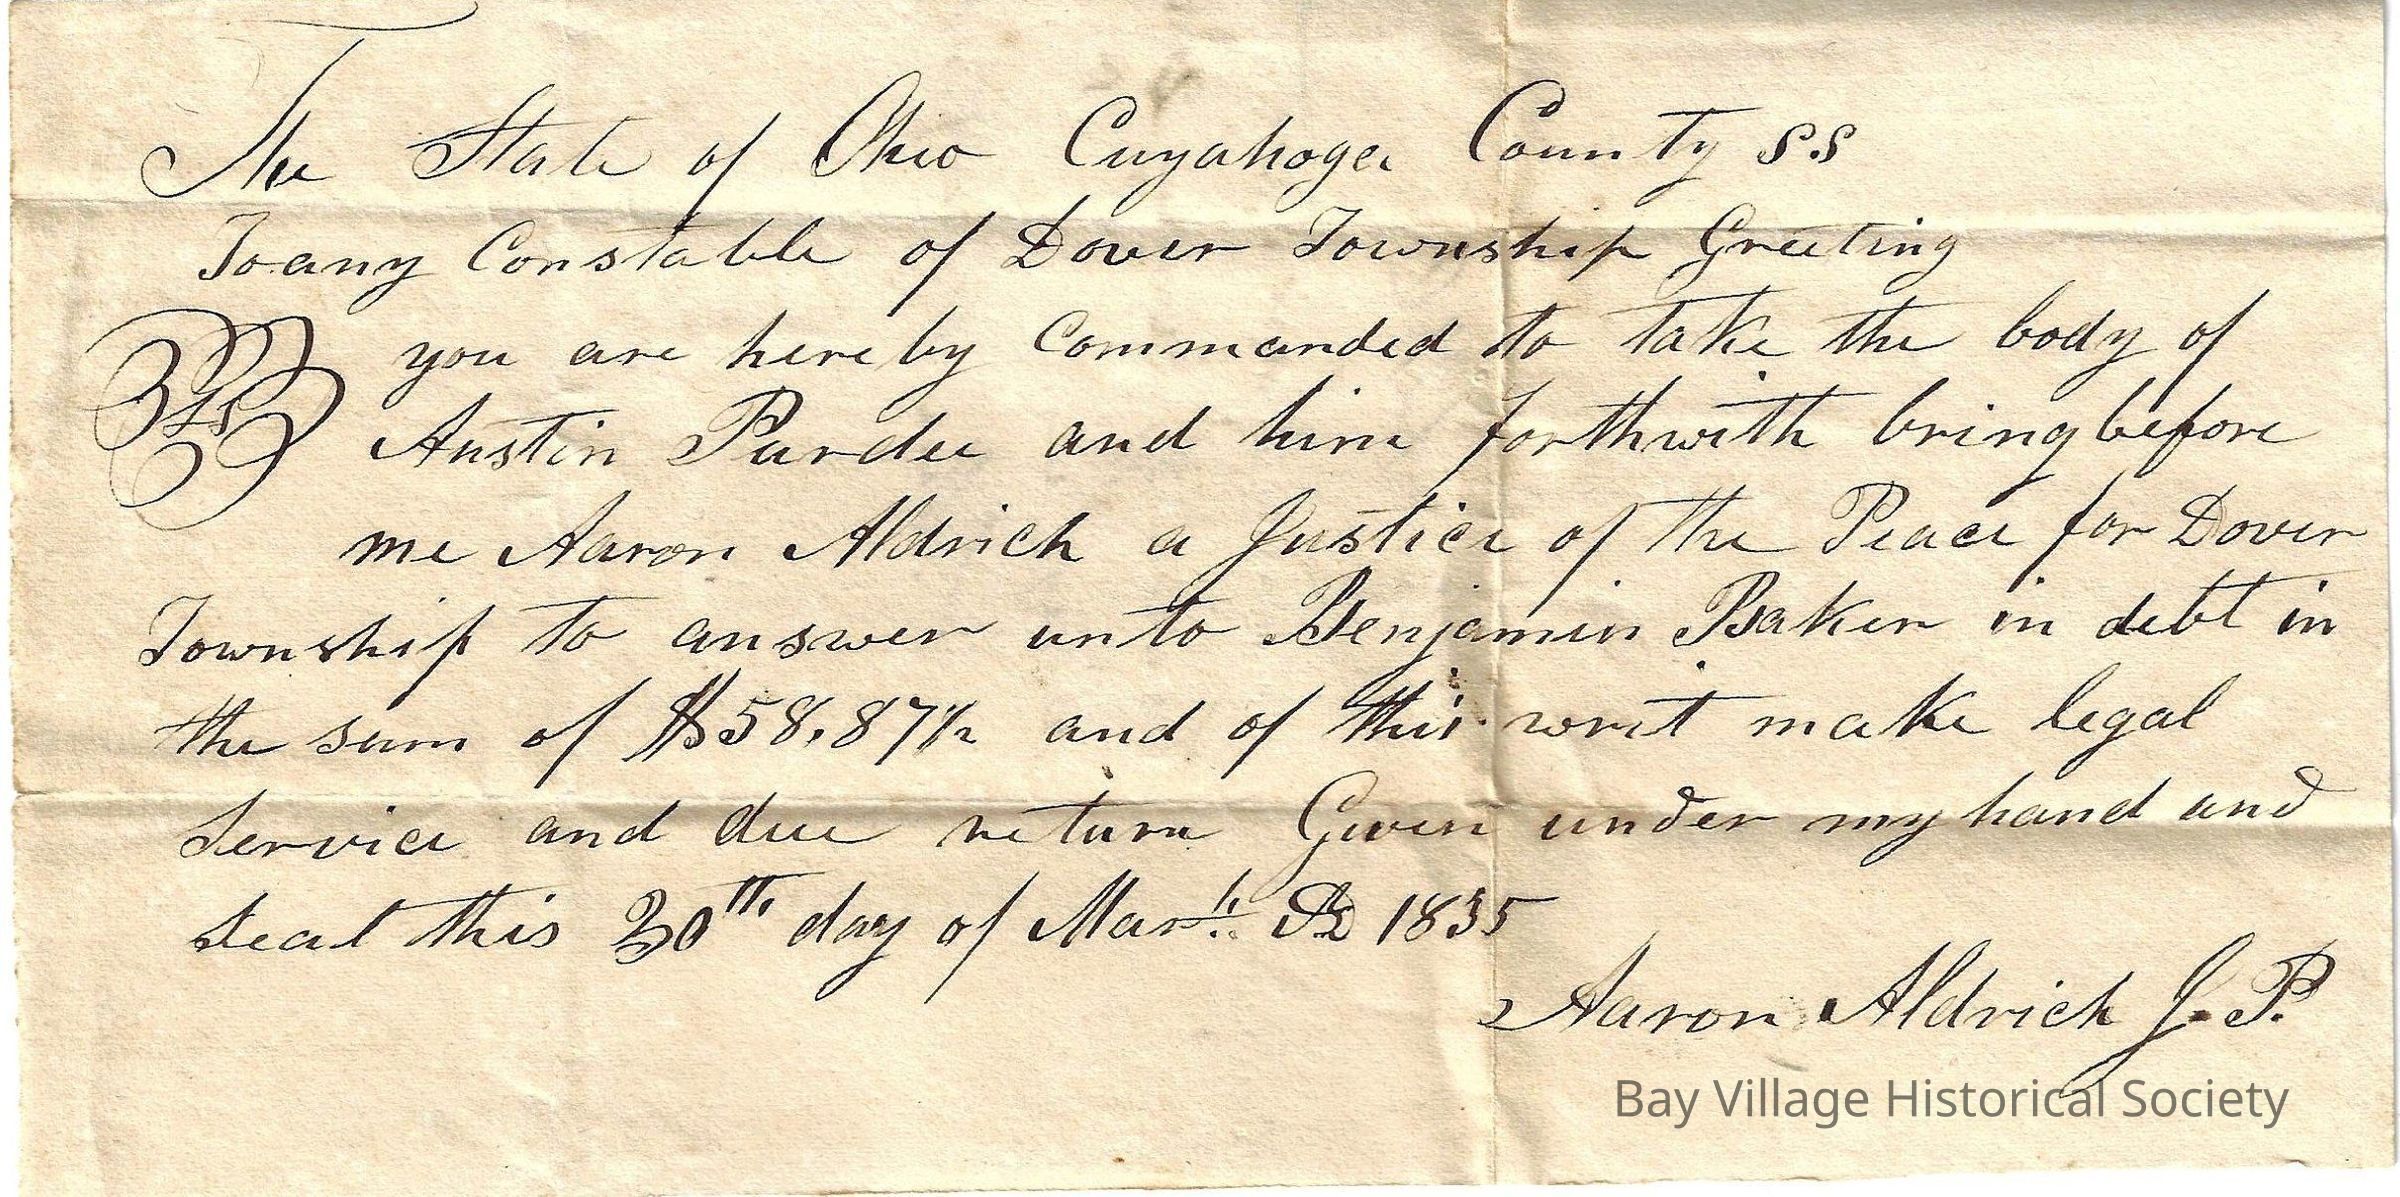 The State of Ohio Cuyahoga County S.S
To any Constable of Dover Township Greeting
you are here by Commanded to take the body of
Austin Pardee and him forthwith bring before
me Aaron Aldrich a Justice of the Peace for Dover
Township to answer unto Benjamin Baker in debt in
the sum of $58.87½ and of this writ make legal
Service and due return Given under my hand and
seal this 30th. day of Marh. AD 1835
Aaron Aldrich J. P.
LS
Bay Village Historical Society